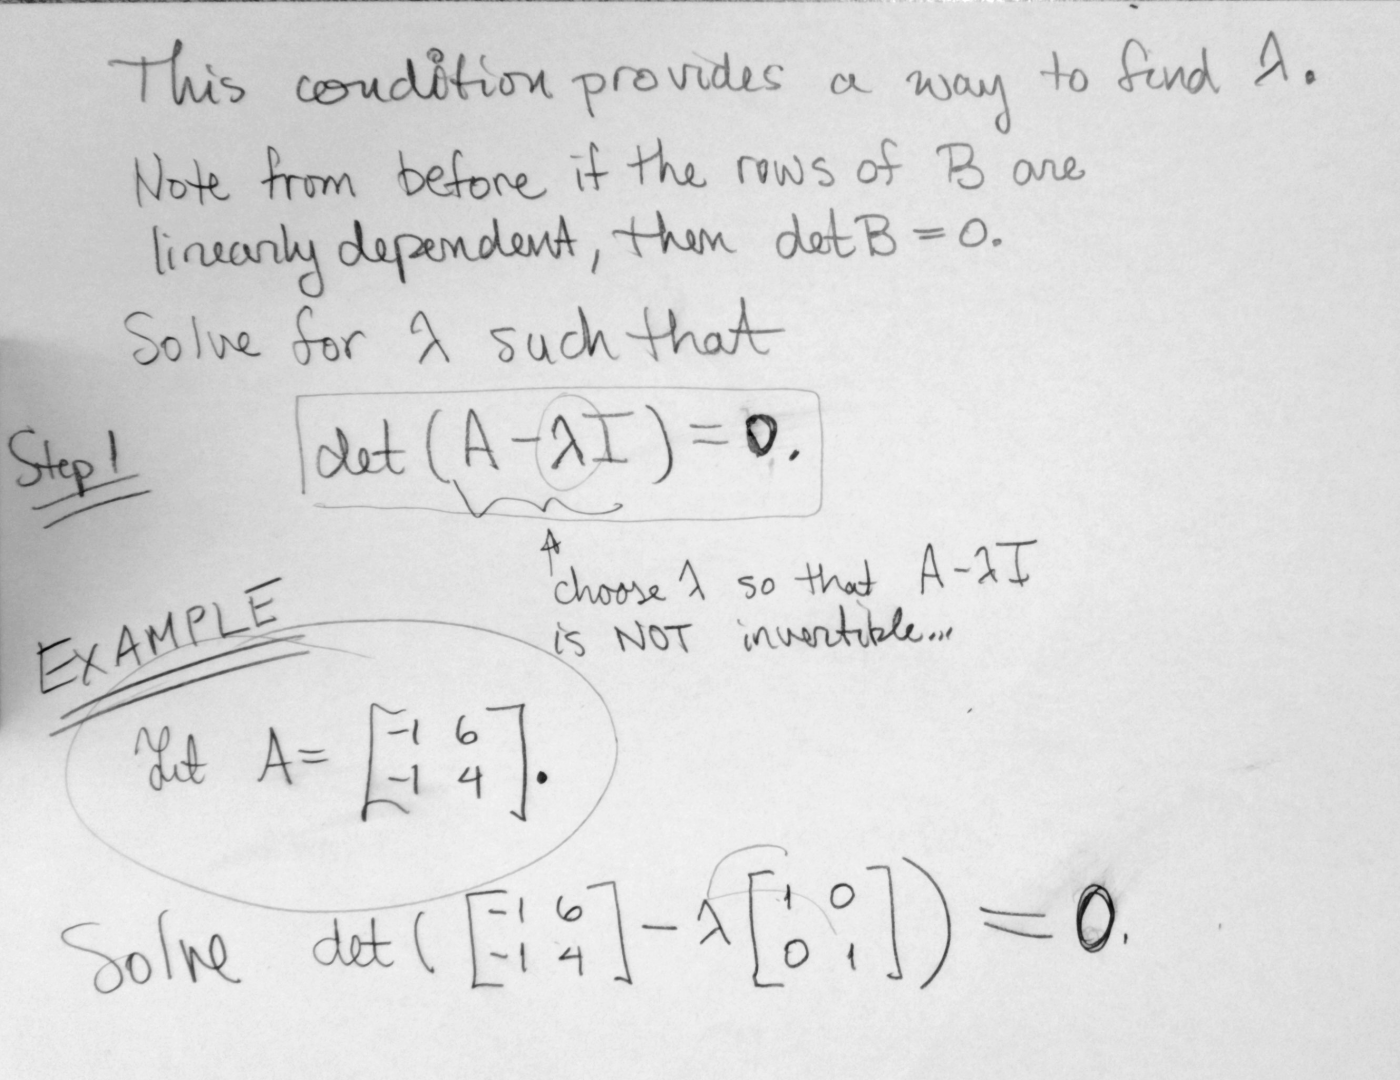 This condition provides a way to find λ.
Note from before if the rows of B are
linearly dependent, then det B = 0.
Solve for λ such that
Step 1
det (A - λI) = 0.
choose λ so that A - λI
is NOT invertible...
EXAMPLE
Let A = [-1 6
-1 4].
Solve det ( [-1 6
-1 4] - λ [1 0
0 1] ) = 0.